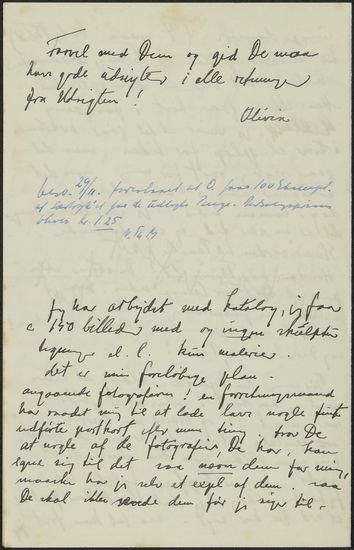 Farvel med Dem og gid De maa
have gode udsigter i alle retninger
fra Udsigten!
Olivia
besv. 29/11. foreslaaet at O. faar 100 Exempl.
af Særtryk at faa de udlagte Penge.
bliver kr. 1.25
Jeg har arbejdet med katalog, jeg faar
c 150 billeder med og ingen skulptur
tegninger el. l. kun malerier.
det er min foreløbige plan.
angaaende fotografierne! en forretningsmand
har raadet mig til at lade lave nogle fint
udførte postkort efter mine ting, tror De
at nogle af de fotografier, De har, kan
egne sig til det saa navn dem for mig,
maaske har jeg selv et expl af dem. saa
De skal ikke sende dem før jeg siger til.